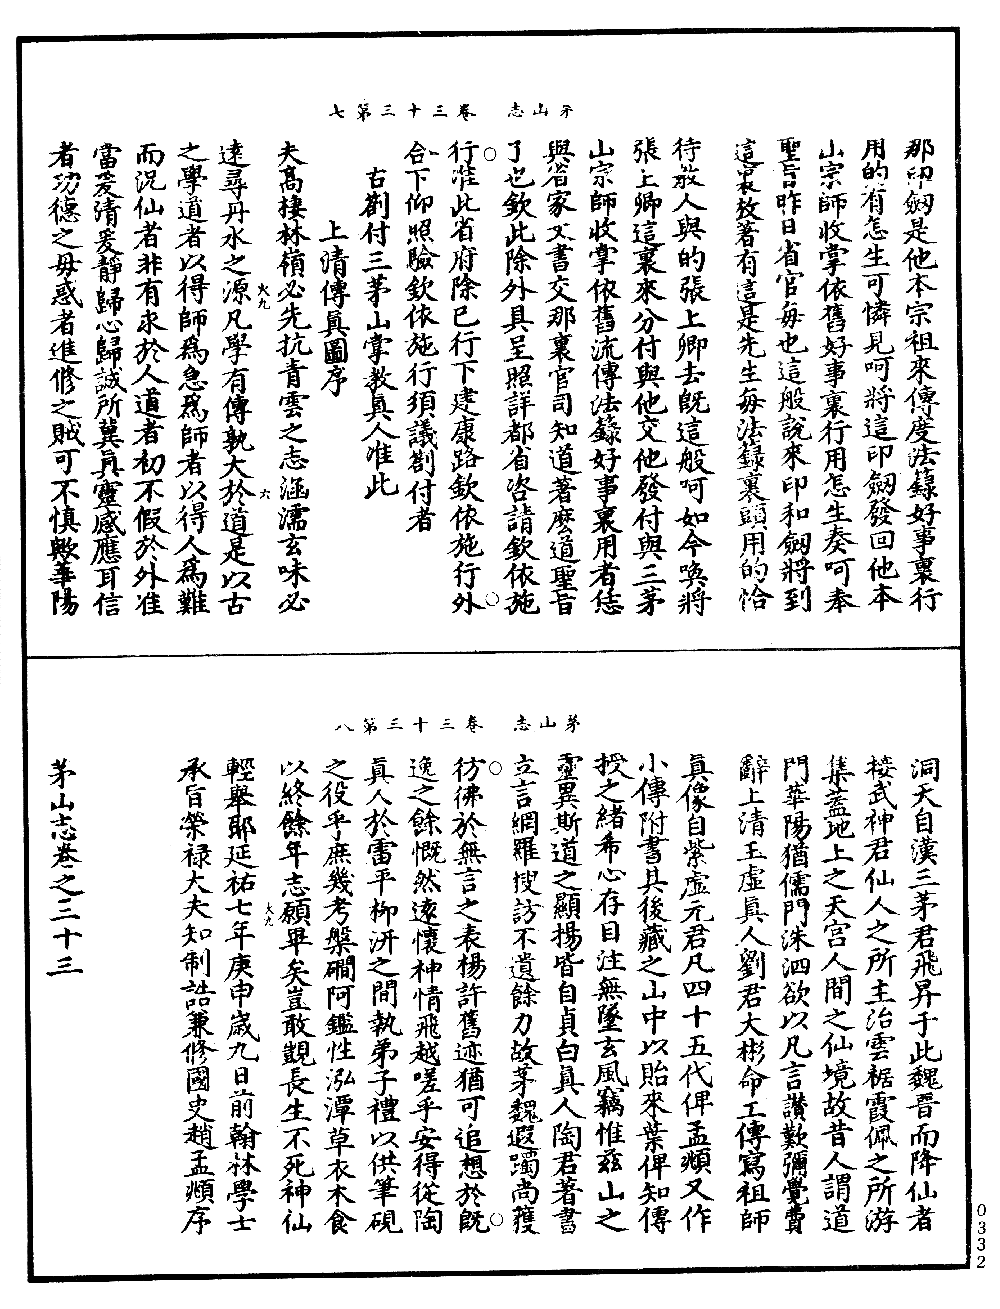 茅山志　卷三十三第七
那印劒是他本宗祖來傳度法籙好事裏行
用的有怎生可憐見呵將這印劒發回他本
山宗師收掌依舊好事裏行用怎生奏呵奉
聖旨昨日省官每也這般說來印和劒將到
這裏放著有這是先生每法籙裏頭用的恰
待敎人與的張上卿去旣這般呵如今喚將
張上卿這裏來分付與他交他發付與三茅
山宗師收掌依舊流傳法籙好事裏用者恁
與省家文書交那裏官司知道著麽道聖旨
了也欽此除外具呈照詳都省咨請欽依施
行准此省府除已行下建康路欽依施行外
合下仰照驗欽依施行須議劄付者
右劄付三茅山掌教眞人准此
上清傳眞圖序
夫高棲林嶺必先抗青雲之志涵濡玄味必
遠尋丹水之源凡學有傳孰大於道是以古
之學道者以得師爲急爲師者以得人爲難
而況仙者非有求於人道者初不假於外准
當爰清爰靜歸心歸誠所冀眞靈感應耳信
者功德之母惑者進修之賊可不慎歟華陽
火九
六
茅山志　卷三十三第八
洞天自漢三茅君飛昇于此魏晋而降仙者
接武神君仙人之所主治雲裾霞佩之所游
集蓋地上之天宮人間之仙境故昔人謂道
門華陽猶儒門洙泗欲以凡言讃歎彌覺費
辭上清玉虛眞人劉君大彬命工傳寫祖師
眞像自紫虛元君凡四十五代俾孟頫又作
小傳附書其後藏之山中以貽來葉俾知傳
授之緒希心存目注無墜玄風竊惟兹山之
靈異斯道之顯揚皆自貞白眞人陶君著書
立言網羅搜訪不遺餘力故茅魏遐躅尚獲
彷彿於無言之表楊許舊迹猶可追想於旣
逸之餘慨然遠懷神情飛越嗟乎安得從陶
眞人於雷平柳汧之間執弟子禮以供筆硯
之役乎庶幾考槃磵阿鑑性泓潭草衣木食
以終餘年志願畢矣豈敢覬長生不死神仙
輕舉耶延祐七年庚申歲九日前翰林學士
承旨榮祿大夫知制誥兼修國史趙孟頫序
火九
茅山志卷之三十三
0332